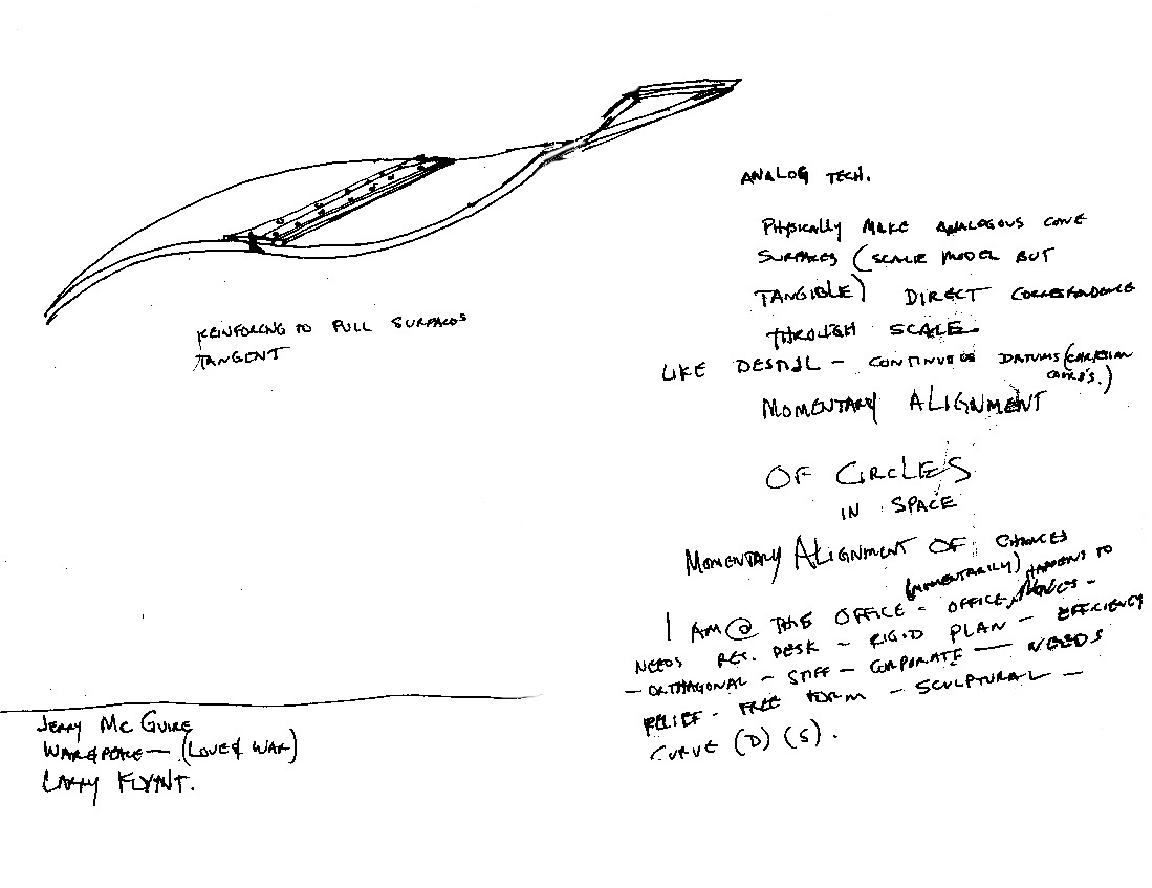 REINFORCING TO PULL SURFACES
TANGENT
ANALOG TECH.
PHYSICALLY MAKE ANALOGOUS CONE
SURFACES (SCALE MODEL BUT
TANGIBLE) DIRECT CORRESPONDENCE
THROUGH SCALE.
LIKE - CONTINUOUS DATUMS (CARTESIAN
MOMENTARY ALIGNMENT
OF CIRCLES
IN SPACE
MOMENTARY ALIGNMENT OF
(MOMENTARILY) HAPPENS TO
I AM @ THE OFFICE - OFFICE
NEEDS REC. DESK - RIGID PLAN - EFFICIENCY
- ORTHAGONAL - STIFF - CORPORATE - NEEDS
RELIEF - FREE FORM - SCULPTURAL -
CURVE (D) (S).
JERRY MC GUIRE
WAR & PEACE - (LOVE & WAR)
LARRY FLYNT.